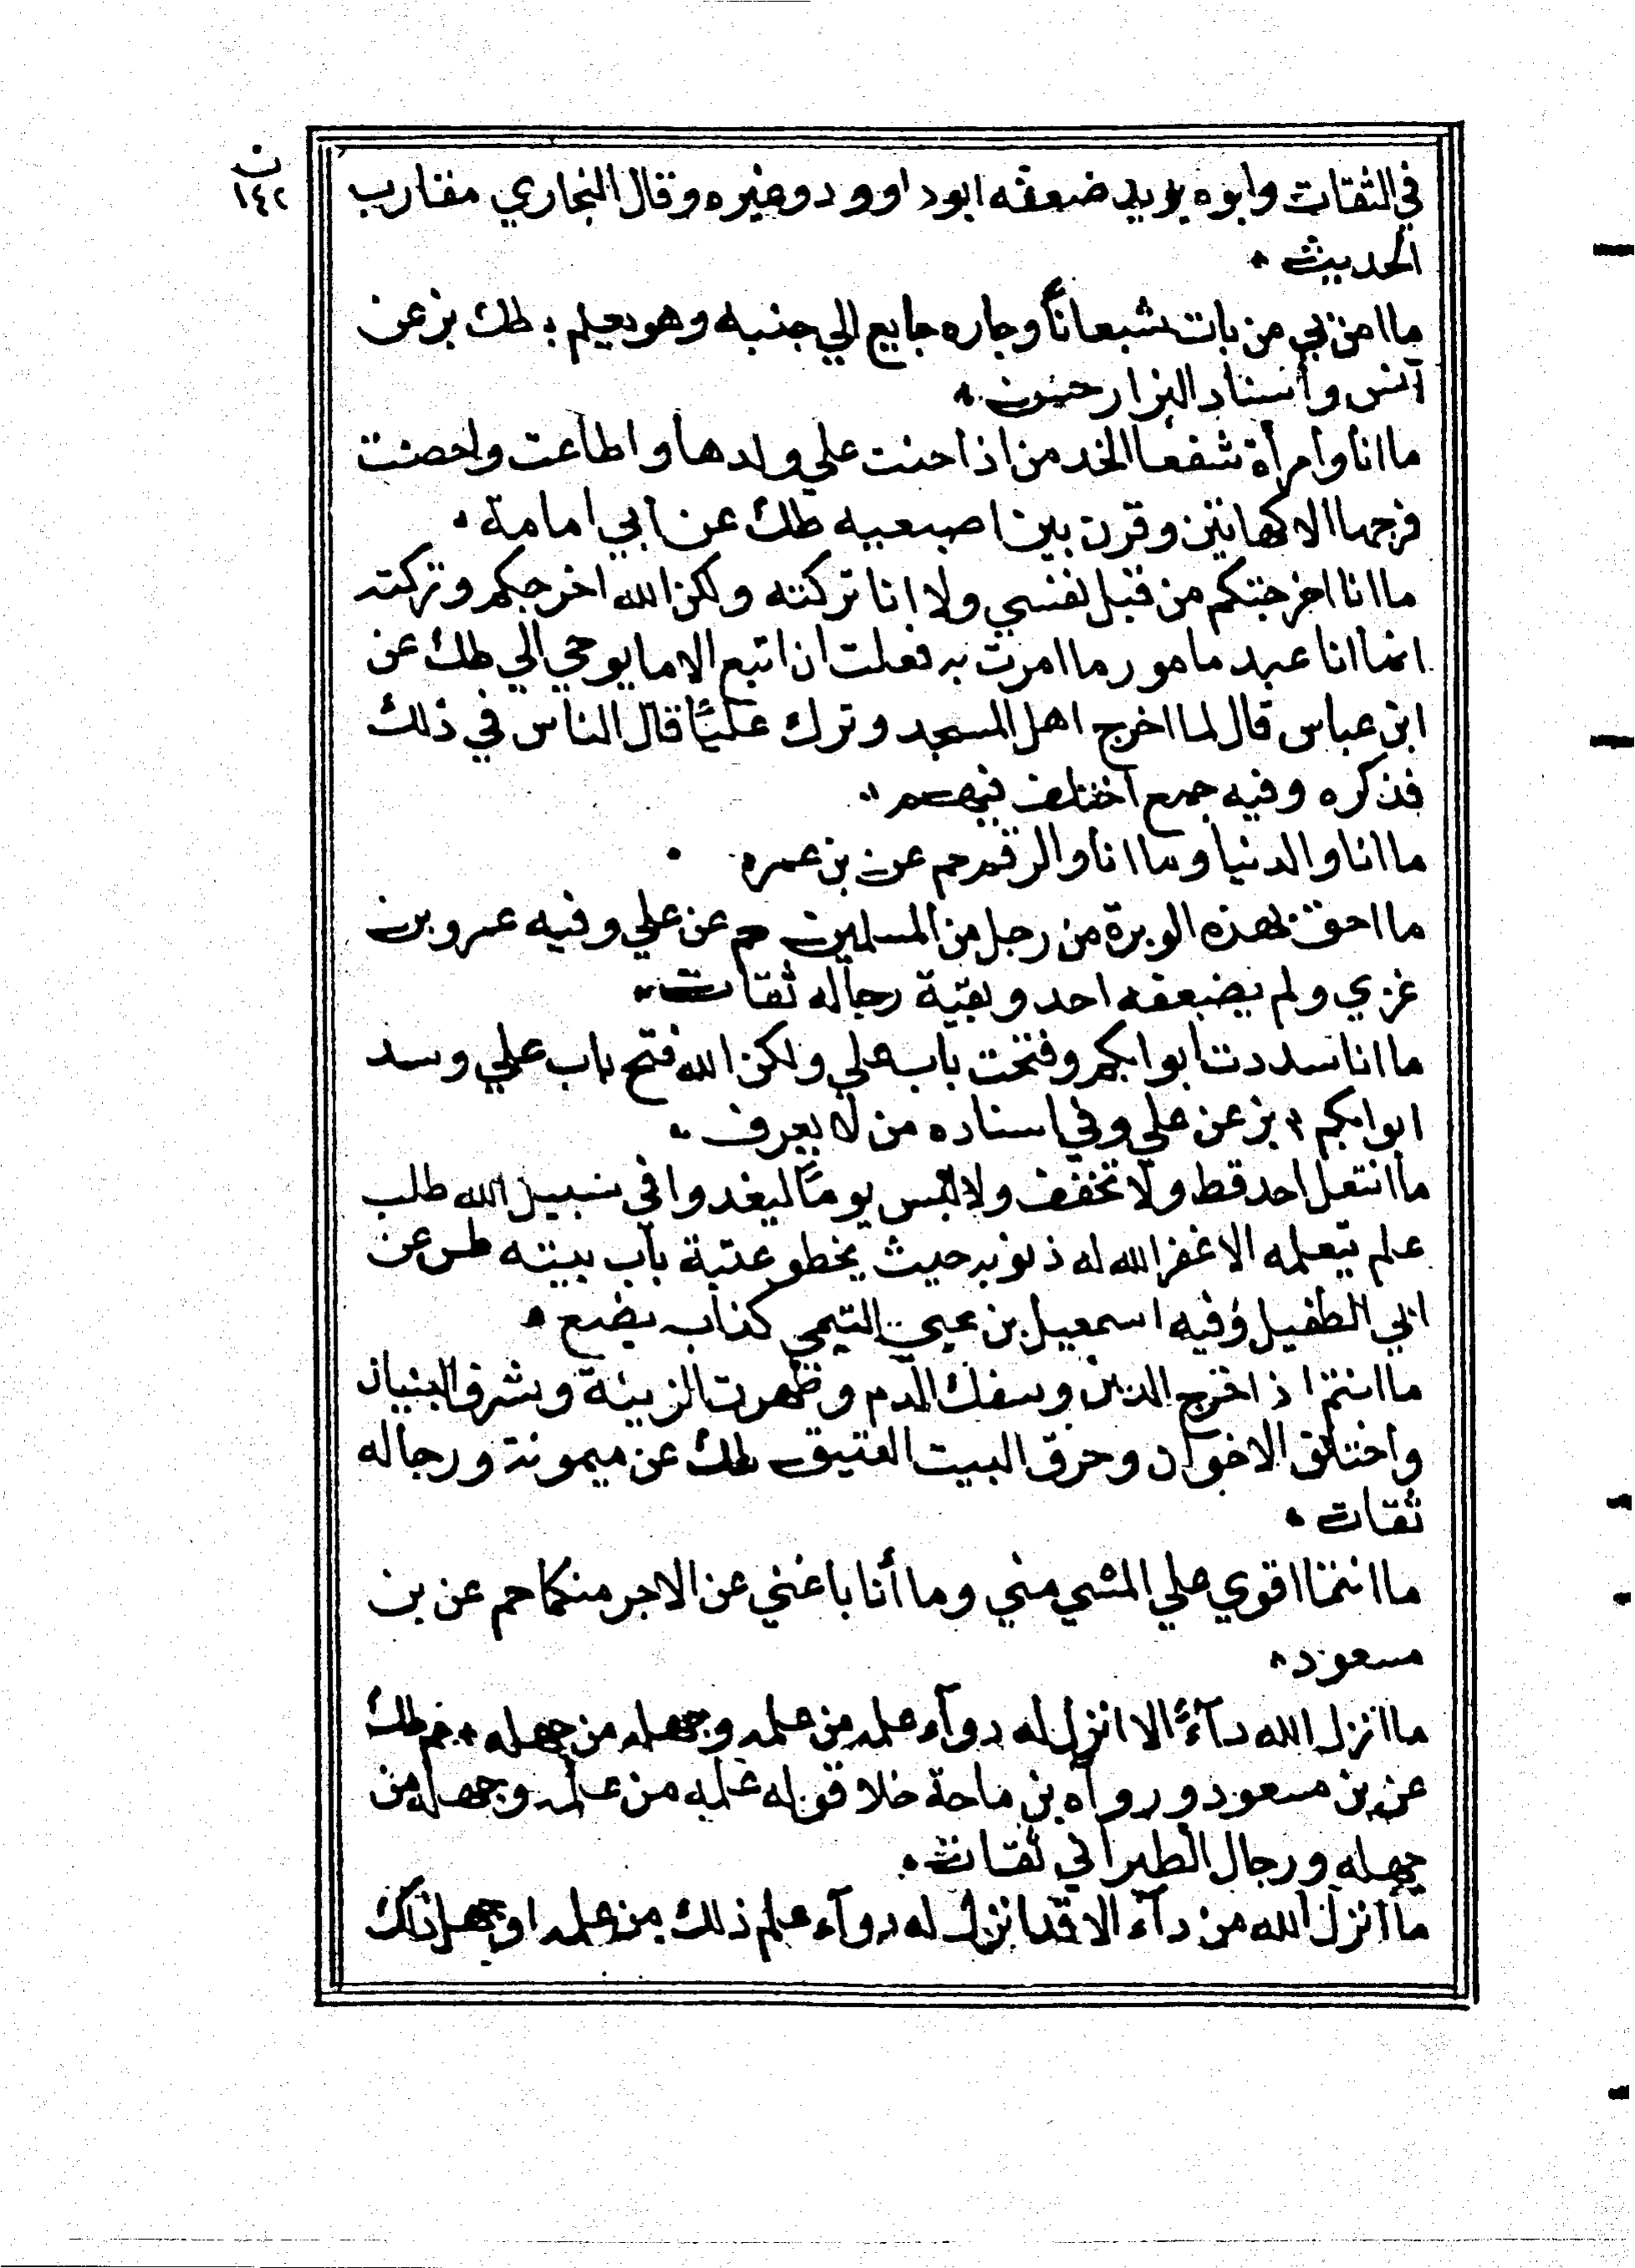 ن
١٤٢
في الثقات وابوه يزيد ضعفه ابوداوود وغيره وقال البخاري مقارب
الحديث
ما امن بي من بات شبعاناً وجاره جايع الي جنبه وهو يعلم به طك بز عن
أنس وأسناد البزار حسن
ما انا وامرأة شفعا الخد من اذا حنت علي ولدها واطاعت واحصنت
فرجها الا كهاتين وقرن بين اصبعيه طك عن ابي امامة
ما انا اخرجتكم من قبل نفسي ولا انا تركته ولكن الله اخرجكم وتركته
انما انا عبد مامور ما امرت به فعلت ان اتبع الا ما يوحي الي طك عن
ابن عباس قال لما اخرج اهل المسجد وترك عليًا قال الناس في ذلك
فذكره وفيه جمع اختلف فيهم
ما انا والدنيا وما انا والرقم حم عن بن عمر
ما احق بهذه الوبرة من رجل من المسلمين حم عن علي وفيه عمرو بن
غزي ولم يضعفه احد وبقية رجاله ثقات
ما انا سددت ابوابكم وفتحت باب علي ولكن الله فتح باب علي وسد
ابوابكم بز عن علي وفي اسناده من لا يعرف
ما انتعل احد قط ولا تخفف ولا لبس يومًا ليغدوا في سبيل الله طلب
علم يتعلمه الا غفر الله له ذنوبه حيث يخطو عتبة باب بيته طس عن
ابي الطفيل وفيه اسمعيل بن يحيي التيمي كذاب يضع
ما انتم اذا خرج الدين وسفك الدم وظهرت الزينة وشرف البنيان
واختلق الاخوان وحرق البيت العتيق طك عن ميمونة ورجاله
ثقات
ما انتما اقوي علي المشي مني وما أنا باغني عن الاجر منكما حم عن بن
مسعود
ما انزل الله دآءً الا انزل له دوآء علمه من علمه وجهله من جهله حم طك
عن بن مسعود ورواه بن ماحة خلا قوله علمه من علمه وجهله من
جهله ورجال الطبراني ثقات
ما أنزل الله من دآء الا قد انزل له دوآء علم ذلك من علمه او جهل ذلك